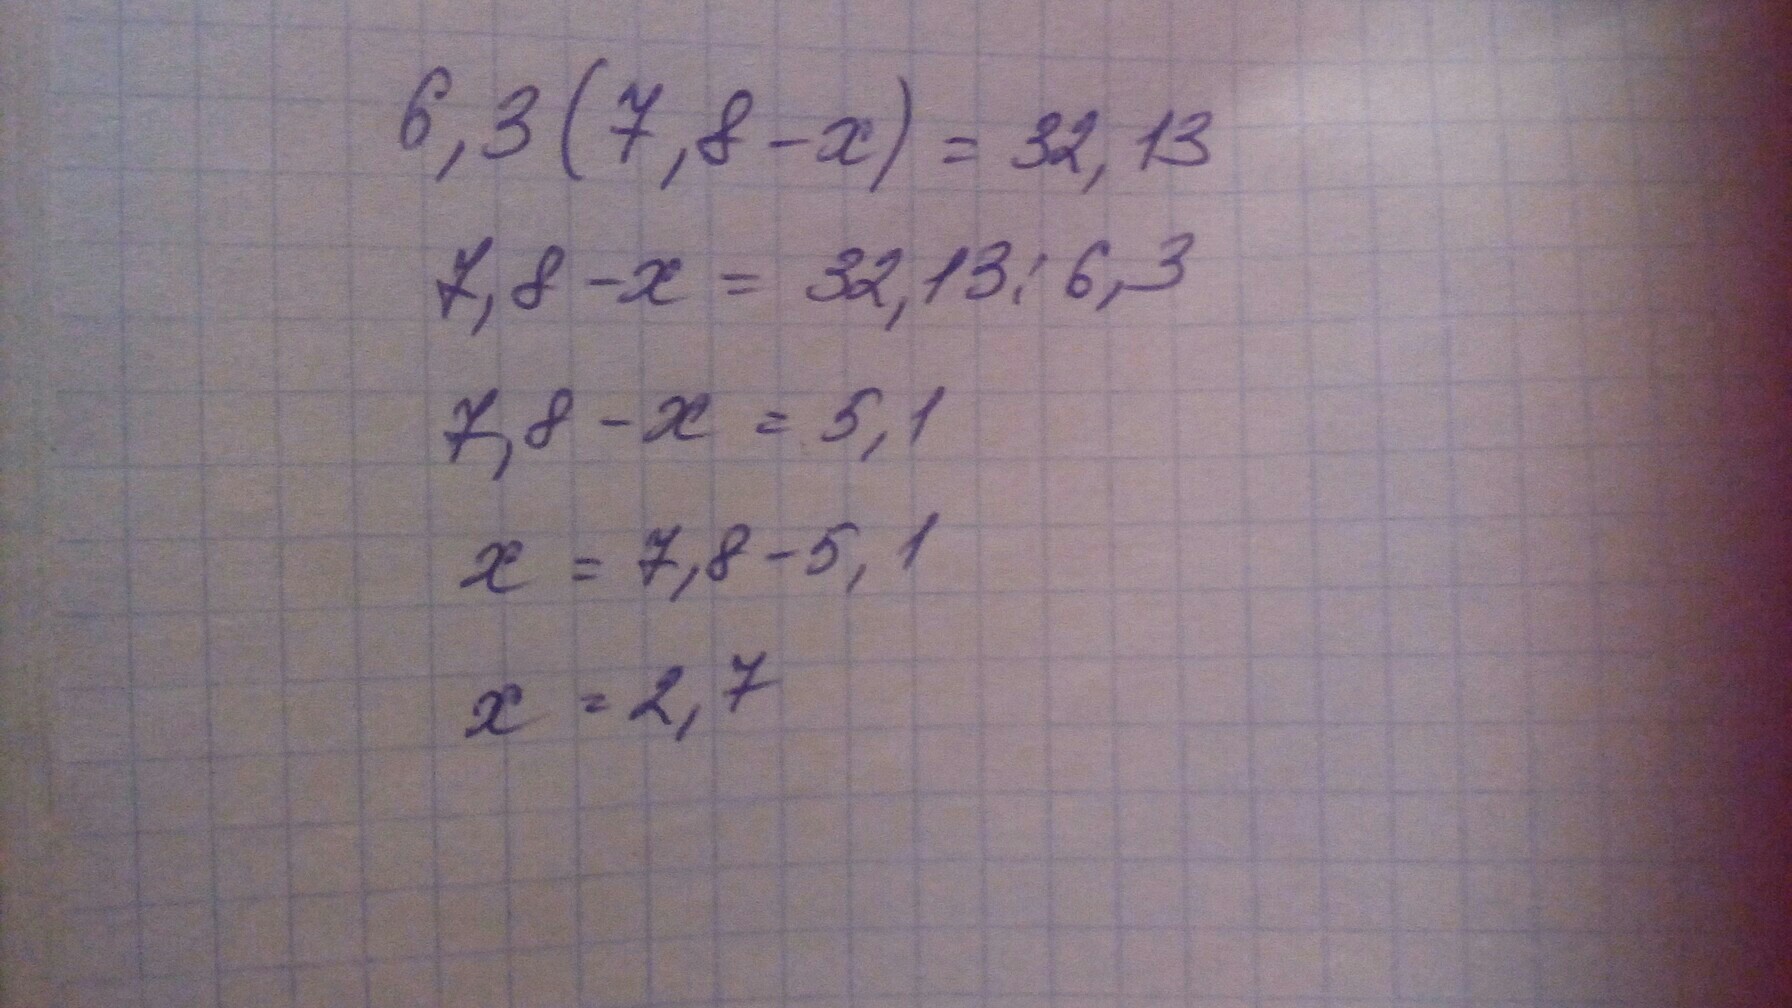 6,3(7,8-x) = 32,13
7,8-x = 32,13:6,3
7,8-x = 5,1
x = 7,8-5,1
x = 2,7